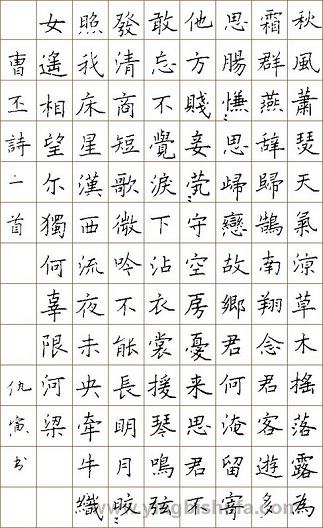 秋風蕭瑟天氣涼草木搖落露為
霜群燕辭歸鵠南翔念君客遊多
思腸慊々思歸戀故鄉君何淹留寄
他方賤妾茕々守空房憂来思君不
敢忘不覺淚下沾衣裳援琴鳴弦
發清商短歌微吟不能長明月皎々
照我床星漢西流夜未央牽牛織
女遙相望尔獨何辜限河梁
曹丕詩一首 仇寅书
www.yingbishufa.com